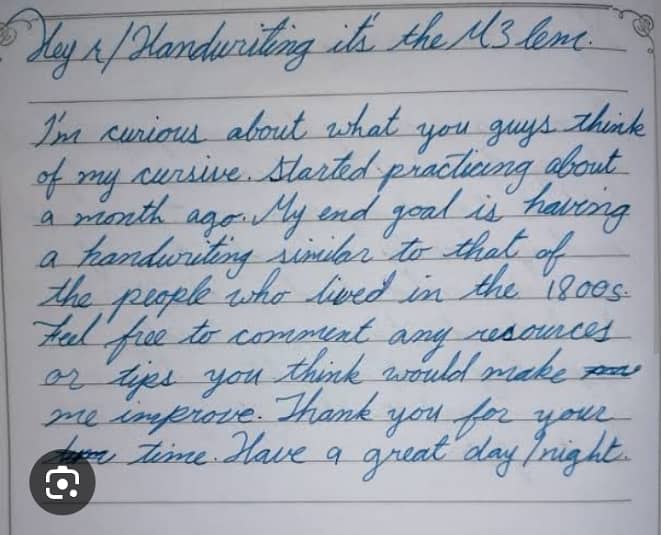 Hey r/Handwriting it's the M3 lenc.
I'm curious about what you guys think
of my cursive. Started practicing about
a month ago. My end goal is having
a handwriting similar to that of
the people who lived in the 1800s.
Feel free to comment any resources
or tips you think would make
me improve. Thank you for your
time. Have a great day/night.